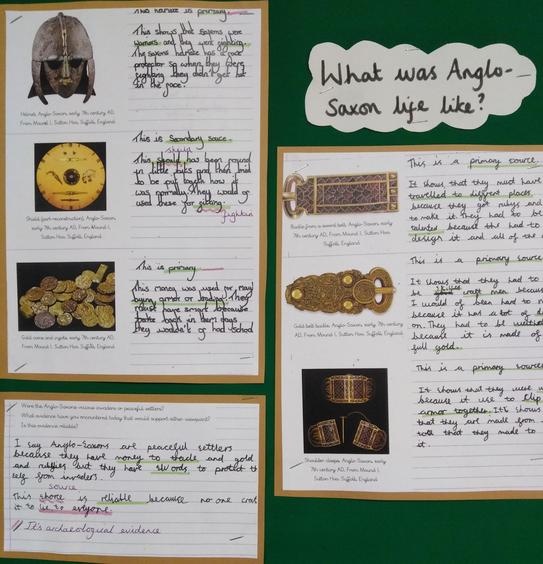 This helmate is primary.
This shows that saxons were
warriors and they went fighting.
The saxons helmate has a face
protector so when they were
fighting they didn't get hit
in the face.
Helmet, Anglo-Saxon, early 7th century AD,
From Mound 1, Sutton Hoo, Suffolk, England
This is Secondary source.
Shield
This should has been found
in little bits and then tried
to be put togeth how it
was normaly. They would of
used these for
fightin
Shield (part-reconstruction), Anglo-Saxon,
early 7th century AD, From Mound 1, Sutton
Hoo, Suffolk, England
This is primary
This money was used for
buying armor or
must have smart because
back in their days
they wouldn't of had school
Gold coins and ingots, early 7th century AD,
From Mound 1, Sutton Hoo, Suffolk, England
Were the Anglo-Saxons vicious invaders or peaceful settlers?
What evidence have you encountered today that would support either viewpoint?
Is this evidence reliable?
I say Anglo-Saxons are peaceful settlers
because they have money to trade and gold
and rubies but they have swords to protect
self from invaders.
source
This shore is reliable because no one
it to lie to
It's archaeological evidence
What was Anglo-
Saxon life like?
This is a primary source.
It shows that they must have
travelled to different places
because they got rubys and
to make it. They had to be
talented because the had to
design it and all of the
Buckle from a sword belt, Anglo-Saxon, early
7th century AD, From Mound 1, Sutton Hoo,
Suffolk, England
This is a primary source
It shows that they had to
be craft men because
I would of been hard to
because it was a lot of
on. They had to be
because it is made of
full gold.
Gold belt buckle, Anglo-Saxon, early 7th century
AD, From Mound 1, Sutton Hoo, Suffolk, England
This is a primary source
It shows that they were
because it use to
armor together. It's shows
that they are made from
that they made to
it.
Shoulder clasps, Anglo-Saxon, early
7th century AD, From Mound 1,
Sutton Hoo, Suffolk, England